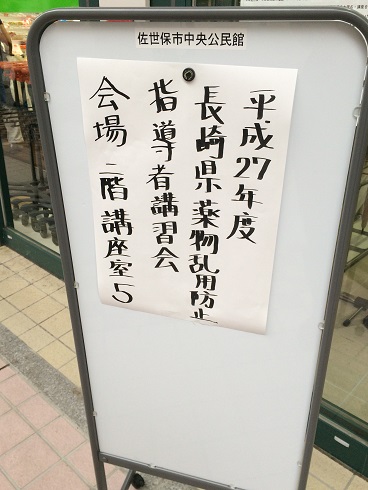 佐世保市中央公民館
平成27年度
長崎県薬物乱用防止
指導者講習会
会場 二階講座室5